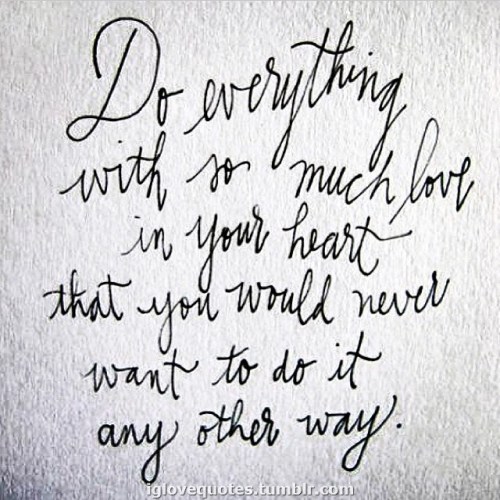 Do everything
with so much love
in your heart
that you would never
want to do it
any other way.
iglovequotes.tumblr.com